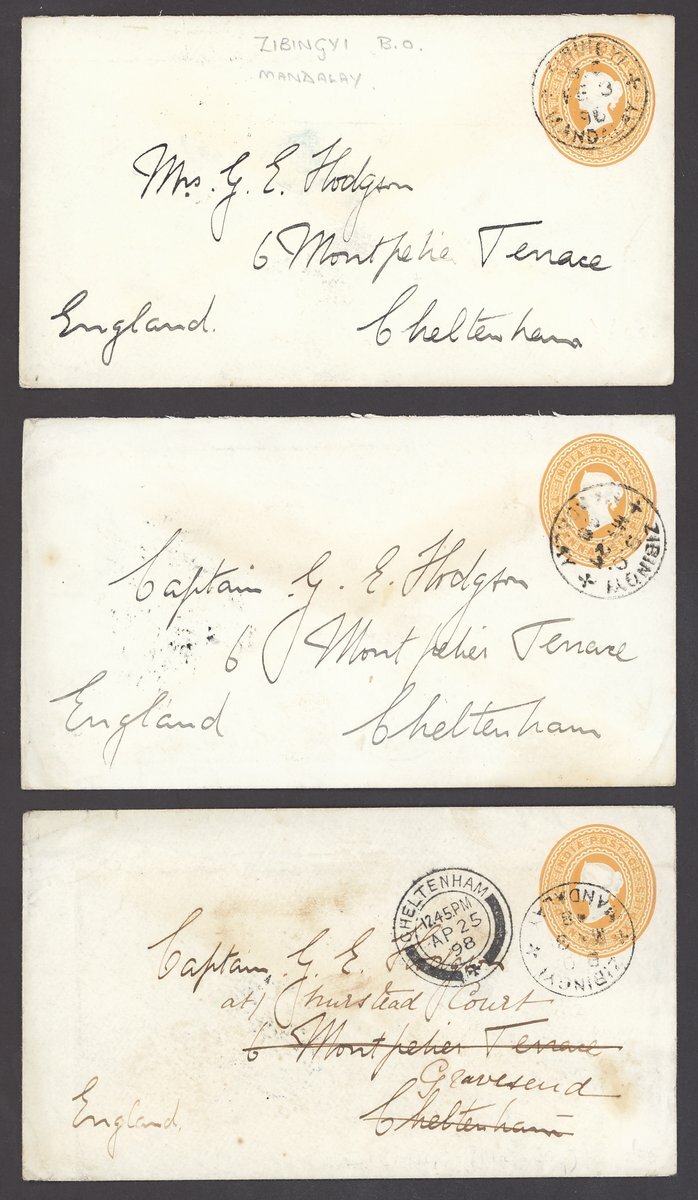 ZIBINGYI B.O.
MANDALAY
ZIBINGYI
98
MANDALAY
Mrs. G. E. Hodgson
6 Montpelier Terrace
England. Cheltenham
INDIA POSTAGE
ZIBINGYI
Captain G. E. Hodgson
6 Montpelier Terrace
England Cheltenham
INDIA POSTAGE
MANDALAY
ZIBINGYI
CHELTENHAM
12.45PM
AP 25
98
Captain G. E.
at Court
6 Montpelier Terrace
Gravesend
Cheltenham
England.